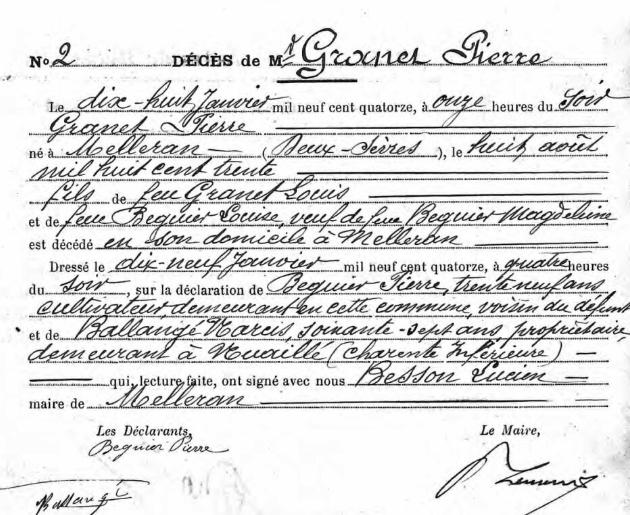 No 2 DÉCÈS de Mr Granet Pierre
Le dix-huit Janvier mil neuf cent quatorze, à onze heures du soir
Granet Pierre
né à Melleran (Deux-Sèvres), le huit août
mil huit cent trente
fils de feu Granet Louis
et de feue Beguier Louise, veuf de feue Beguier Magdeleine
est décédé en son domicile à Melleran
Dressé le dix-neuf Janvier mil neuf cent quatorze, à quatre heures
du soir, sur la déclaration de Beguier Pierre, trente neuf ans
cultivateur demeurant en cette commune, voisin du défunt
et de Ballangé Narcis, soixante-sept ans, propriétaire,
demeurant à Nuaillé (Charente Inférieure)
qui, lecture faite, ont signé avec nous Besson Lucien
maire de Melleran
Les Déclarants, Le Maire,
Beguier Pierre
Ballangé